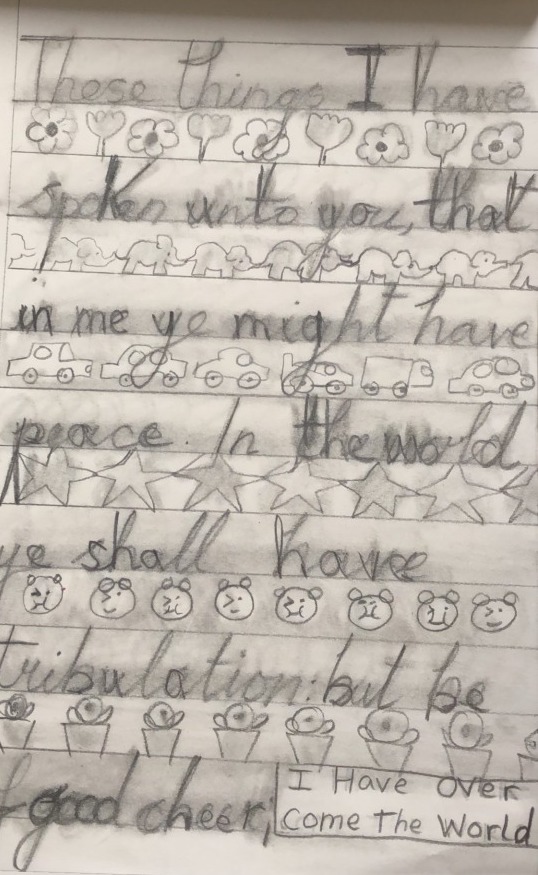 These things I have
spoken unto you, that
in me ye might have
peace. In the world
ye shall have
tribulation: but be
f good cheer,
I Have over
come The World